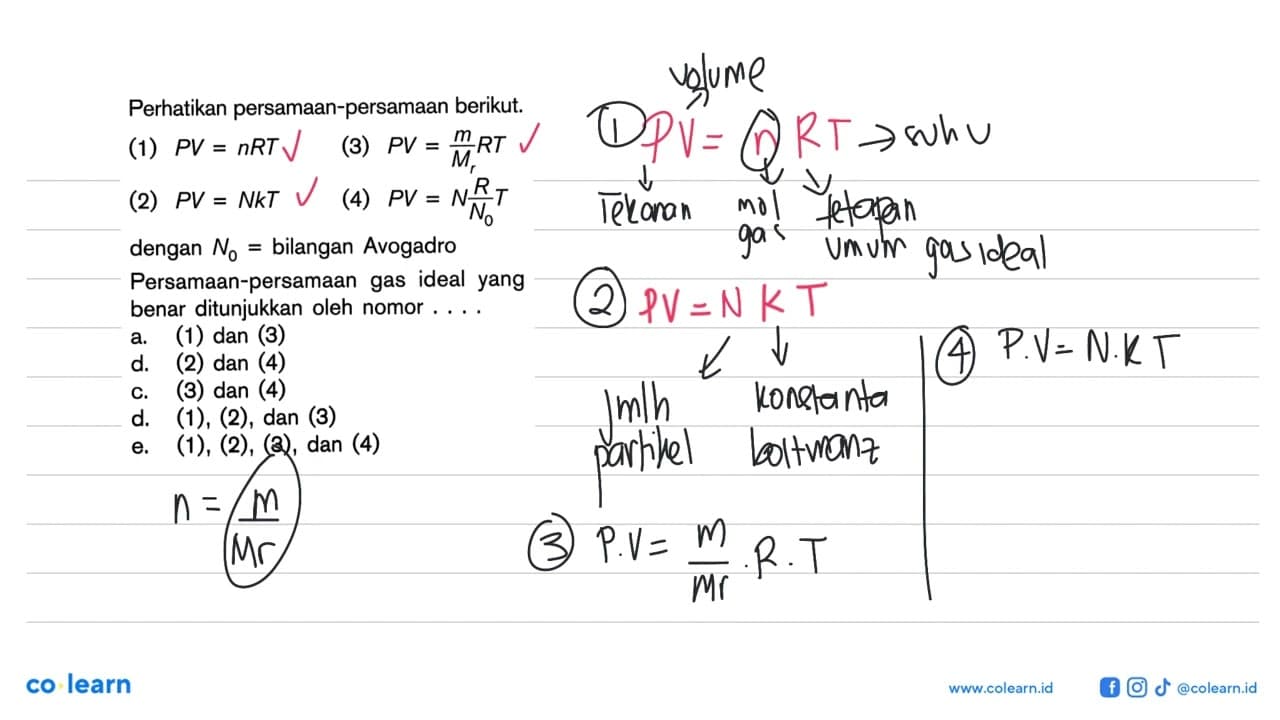 Perhatikan persamaan-persamaan berikut.
(1) PV = nRT ✓ (3) PV = m/Mr RT ✓
(2) PV = NkT ✓ (4) PV = N R/N₀ T
dengan N₀ = bilangan Avogadro
Persamaan-persamaan gas ideal yang
benar ditunjukkan oleh nomor . . . .
a. (1) dan (3)
d. (2) dan (4)
c. (3) dan (4)
d. (1), (2), dan (3)
e. (1), (2), (3), dan (4)
n = m/Mr
volume
① PV = n R T → suhu
Tekanan mol gas tetapan umum gas ideal
② PV = N K T
Jmlh partikel konstanta boltmanz
③ P.V = m/Mr . R . T
④ P.V = N.K T
co learn
www.colearn.id @colearn.id